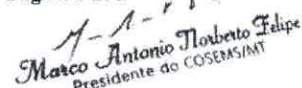 Marco Antonio Norberto Felipe
Presidente do COSEMS/MT